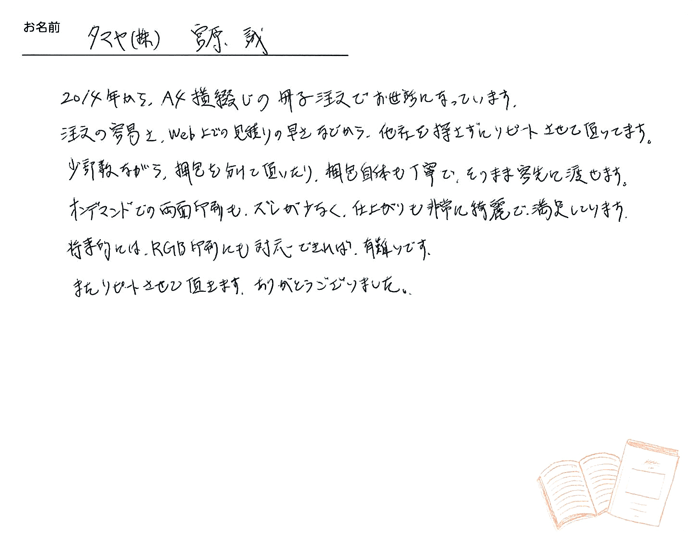 お名前 タマヤ(株) 宮原 誠
2014年から、A4横綴じの冊子注文でお世話になっています。
注文の容易さ、Web上での見積りの早さなどから、他社を探さずにリピートさせて頂いてます。
少部数ながら、梱包を分けて頂いたり、梱包自体も丁寧で、そのまま客先に渡せます。
オンデマンドでの両面印刷も、ズレが少なく、仕上がりも非常に綺麗で、満足しています。
将来的には、RGB印刷にも対応できれば、有難いです。
またリピートさせて頂きます。ありがとうございました。